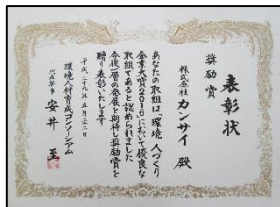 表彰状
奨励賞
株式会社 カンサイ 殿
あなたの取組は「環境 人づくり
企業大賞2016」において優秀な
取組であると認められました
今後一層の発展を期待し奨励賞を
贈り表彰いたします
平成二十九年五月二十二日
環境人材育成コンソーシアム
代表幹事 安井 至